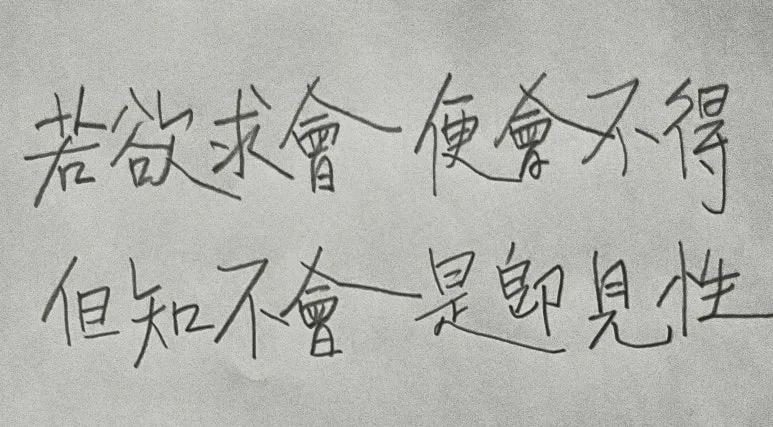 若欲求會便會不得
但知不會是即見性